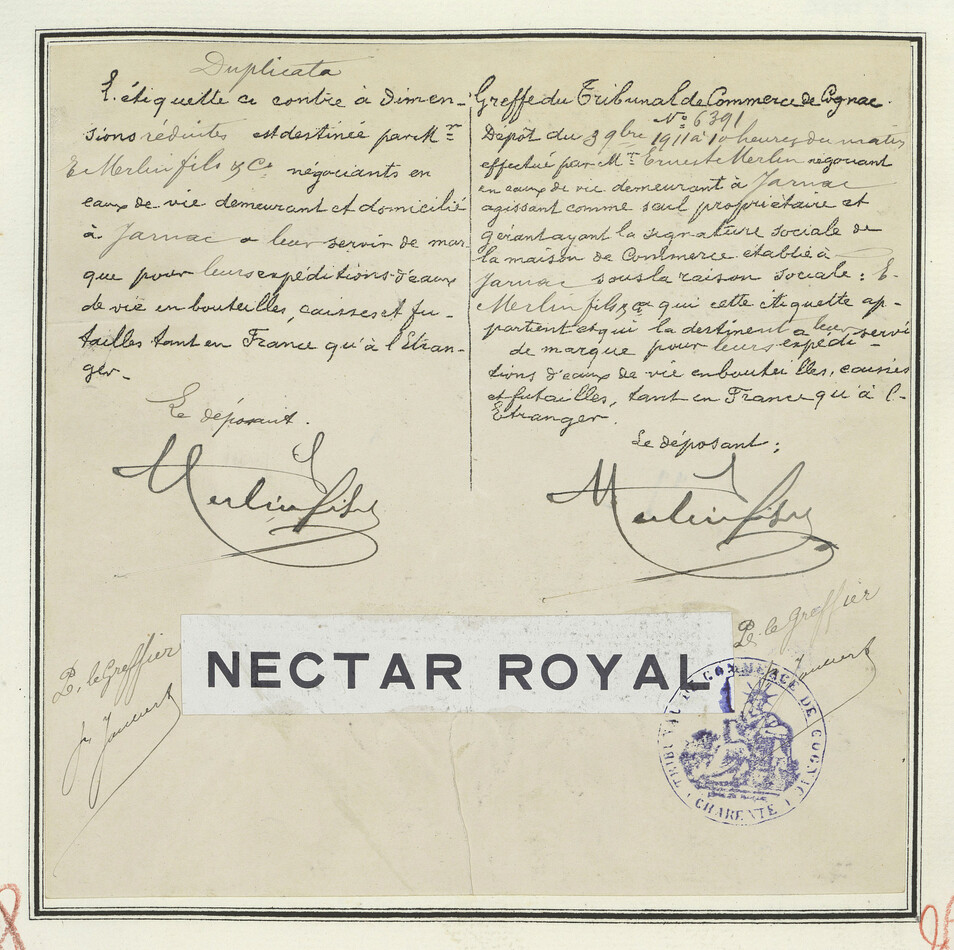 Duplicata
L'étiquette ci contre à Dimen-
sions réduites est destinée par Mrs
E. Merlin fils & Ce négociants en
eaux de vie demeurant et domicilié
à Jarnac a leur servir de mar-
que pour leurs expéditions d'eaux
de vie en bouteilles, caisses et fu-
tailles tant en France qu'à l'Etran-
ger.
Le déposant.
Merlin fils
Greffe du Tribunal de Commerce de Cognac.
No 6391
Dépôt du 9bre 1911 à 10 heures du matin
effectué par Mr Ernest Merlin négociant
en eaux de vie demeurant à Jarnac
agissant comme seul propriétaire et
gérant ayant la signature sociale de
la maison de Commerce établie à
Jarnac sous la raison sociale : E.
Merlin fils & Ce qui cette étiquette ap-
partient et qui la destinent a leur servir
de marque pour leurs expédi-
tions d'eaux de vie en bouteilles, caisses
et futailles, tant en France qu'à l'
Etranger.
Le déposant :
Merlin fils
P. le Greffier
NECTAR ROYAL
P. le Greffier
TRIBUNAL DE COMMERCE DE COGNAC
CHARENTE